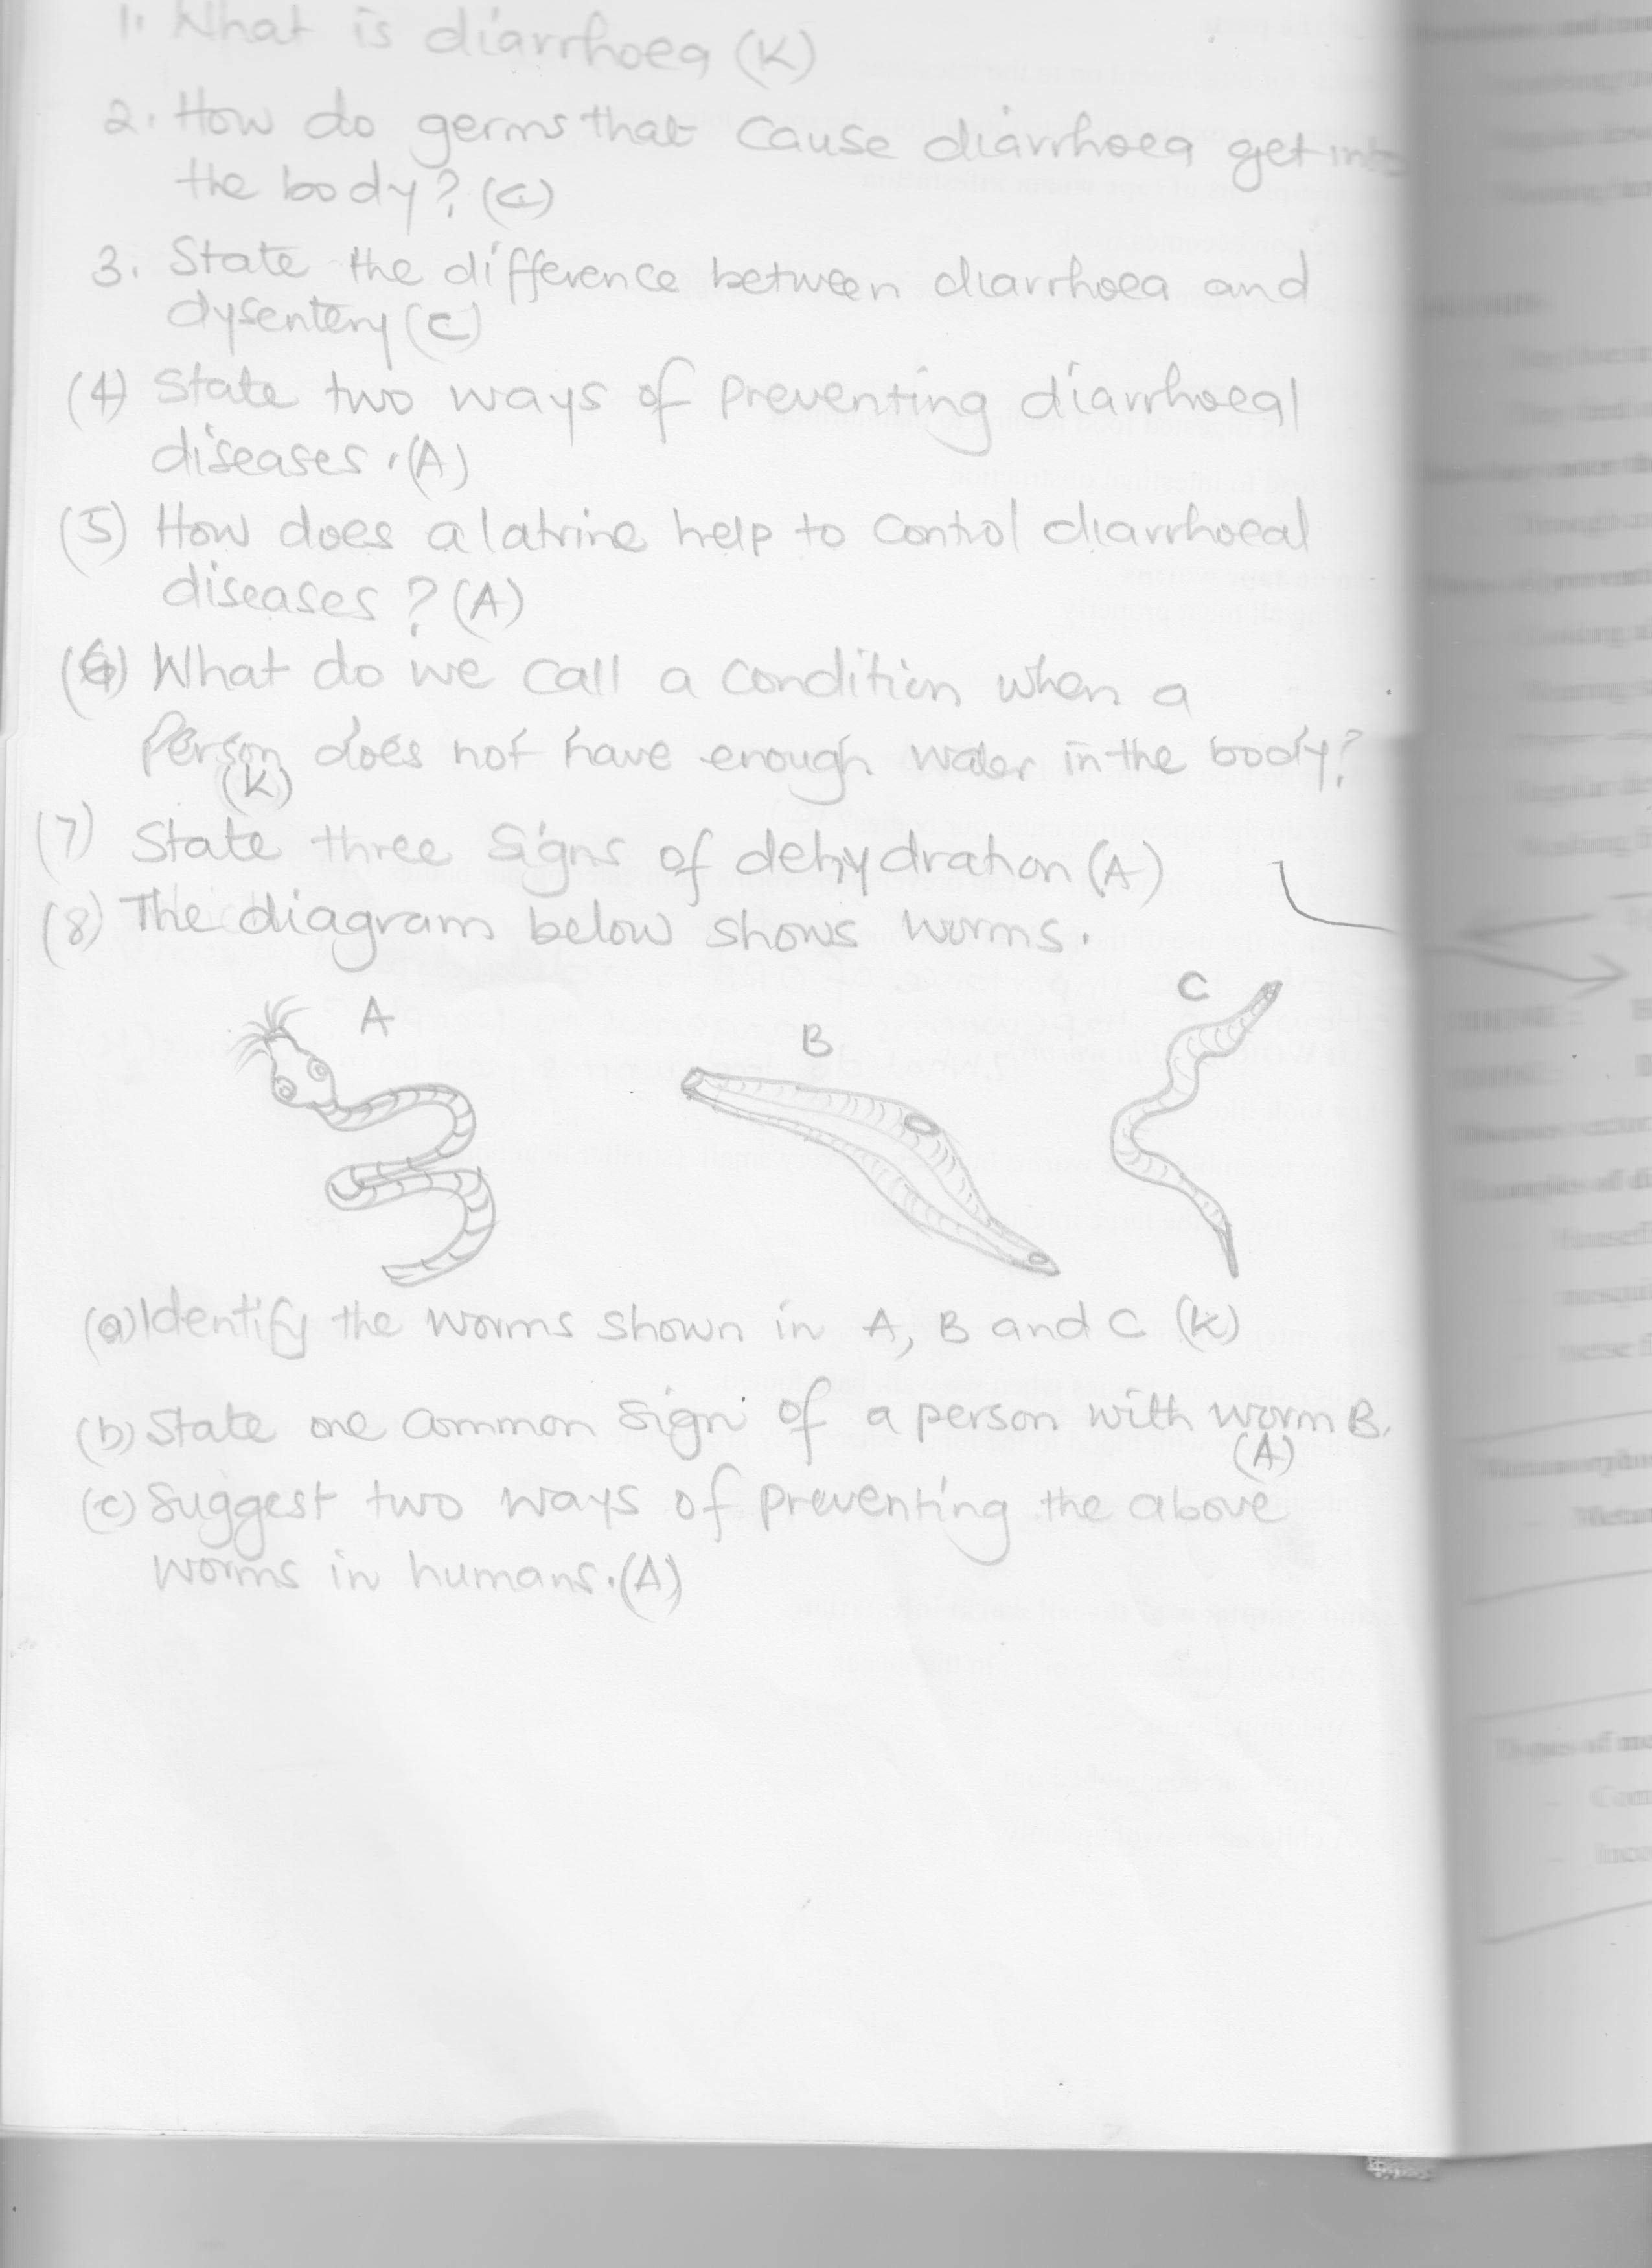 1. What is diarrhoea (K)
2. How do germs that cause diarrhoea get into
the body? (C)
3. State the difference between diarrhoea and
dysentery (C)
(4) State two ways of preventing diarrhoeal
diseases. (A)
(5) How does a latrine help to control diarrhoeal
diseases? (A)
(6) What do we call a condition when a
person does not have enough water in the body?
(K)
(7) State three signs of dehydration (A)
(8) The diagram below shows worms.
A
B
C
(a) Identify the worms shown in A, B and C (K)
(b) State one common sign of a person with worm B.
(A)
(c) Suggest two ways of preventing the above
worms in humans. (A)